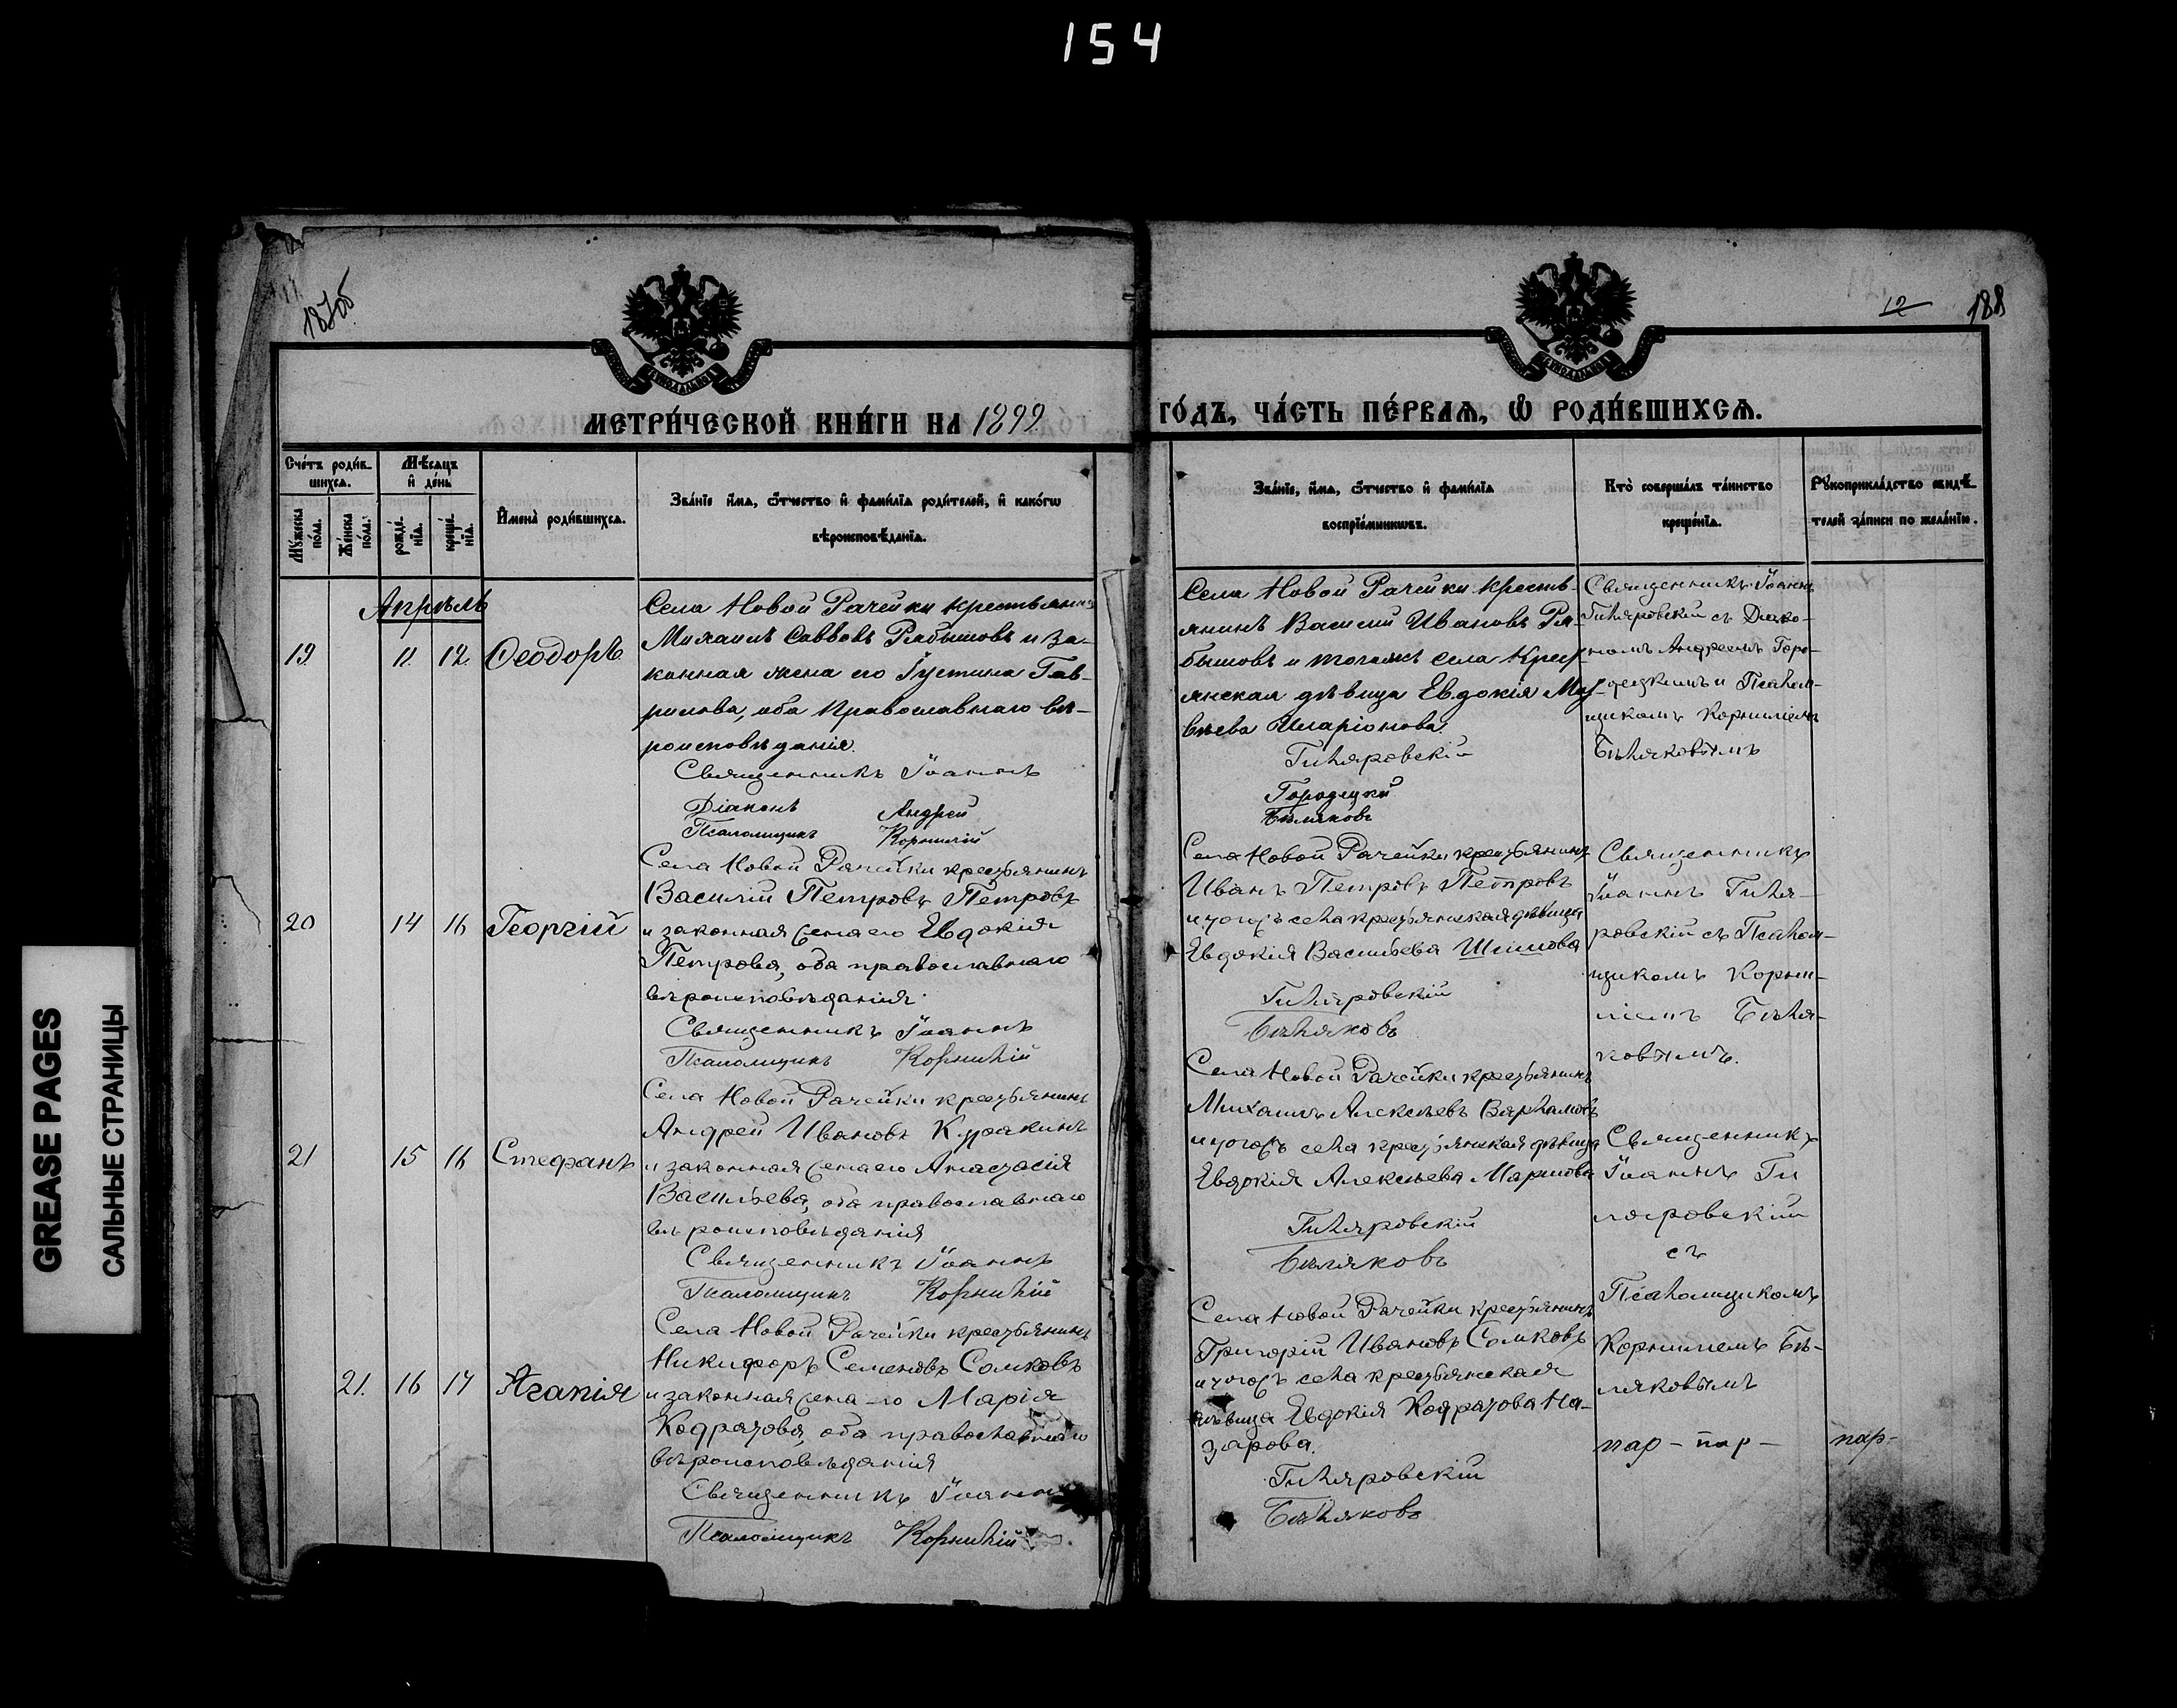 154
GREASE PAGES
САЛЬНЫЕ СТРАНИЦЫ
187об
12
188
МЕТРИ́ЧЕСКОЙ КНИ́ГИ НА 1899
ГО́ДЪ, ЧА́СТЬ ПЕ́РВАѦ, Ѡ҆ РОДИ́ВШИХСѦ.
Сче́тъ роди́в-
шихсѧ.
Мꙋ́жеска по́ла.
Же́нска по́ла.
Мѣ́сѧцъ и҆ де́нь
рожде́нїѧ.
креще́нїѧ.
И҆мена̀ роди́вшихсѧ.
Зва́нїе и҆́мѧ, ѻ҆́тчество и҆ фами́лїѧ роди́телей, и҆ како́гѡ
вѣроисповѣ́данїѧ.
Зва́нїе, и҆́мѧ, ѻ҆́тчество и҆ фами́лїѧ
воспрїе́мникѡвъ.
Кто̀ соверша́лъ та́инство
креще́нїѧ.
Рꙋкоприкла́дство свидѣ́-
телей за́писи по жела́нїю.
Апрѣль
19.
11
12
Ѳеодоръ
Села Новой Рачейки крестьянинъ
Михаилъ Саввовъ Рябышовъ и за-
конная жена его Іустина Гав-
рилова, оба Православнаго вѣ-
роисповѣданія.
Священникъ Іоаннъ
Діаконъ Андрей
Псаломщикъ Корнилій
Села Новой Рачейки кресть-
янинъ Василій Ивановъ Ря-
бышовъ и тогожъ села крест-
янская дѣвица Евдокія Мат-
вѣева Иларіонова
Гиляровскій
Городецкій
Бѣляковъ
Священникъ Іоаннъ
Гиляровскій съ Діако-
номъ Андреемъ Горо-
децкимъ и Псалом-
щикомъ Корниліемъ
Бѣляковымъ
20
14
16
Георгій
Села Новой Рачейки крестьянинъ
Василій Петровъ Петровъ
и законная жена его Евдокія
Петрова, оба православнаго
вѣроисповѣданія.
Священникъ Іоаннъ
Псаломщикъ Корнилій
Села Новой Рачейки крестьянинъ
Иванъ Петровъ Петровъ
и тогожъ села крестьянская дѣвица
Евдокія Васильева
Гиляровскій
Бѣляковъ
Священникъ
Іоаннъ Гиля-
ровскій съ Псалом-
щикомъ Корни-
ліемъ Бѣля-
ковымъ.
21
15
16
Стефанъ
Села Новой Рачейки крестьянинъ
Андрей Ивановъ Куракинъ
и законная жена его Анастасія
Васильева, оба православнаго
вѣроисповѣданія
Священникъ Іоаннъ
Псаломщикъ Корнилій
Села Новой Рачейки крестьянинъ
Михаилъ Алексѣевъ Варламовъ
и тогожъ села крестьянская дѣвица
Евдокія Алексѣева
Гиляровскій
Бѣляковъ
Священникъ
Іоаннъ Ги
ляровскій
съ
Псаломщикомъ
Корниліемъ Бѣ-
ляковымъ
21.
16
17
Агапія
Села Новой Рачейки крестьянинъ
Никифоръ Семеновъ Сомковъ
и законная жена его Марія
Кодратова, оба православнаго
вѣроисповѣданія
Священникъ Іоаннъ
Псаломщикъ Корнилій
Села Новой Рачейки крестьянинъ
Григорій Ивановъ Сомковъ
и тогожъ села крестьянская
дѣвица Евдокія Кодратова На-
зарова.
Гиляровскій
Бѣляковъ
пар- пар-
пар-